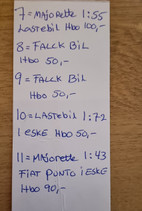 7 = MAJORETTE 1:55
LASTEBIL Hbo 100,-
8 = FALCK BIL
Hbo 50,-
9 = FALCK BIL
Hbo 50,-
10 = LASTEBIL 1:72
I ESKE Hbo 50,-
11 = MAJORETTE 1:43
FIAT PUNTO I ESKE
Hbo 90,-